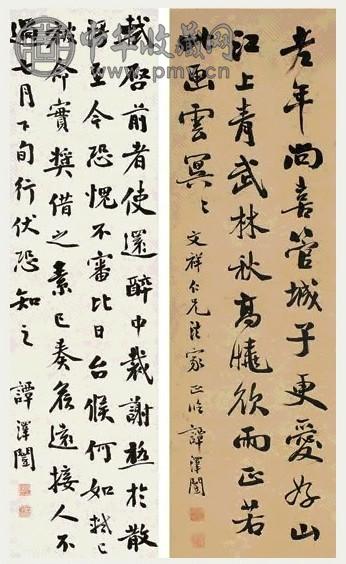 中华收藏网
www.pmv.cn
老年尚喜管城子更愛好山
江上青武林秋高曉欲雨正若
此畫雲冥〻
文祥仁兄法家正臨 譚澤闓
軾啓前者使還醉中裁謝極於散
至今恐愧不審比日台候何如軾已
被命實奬借之素已奏 遠接人不
過七月下旬行伏恐知之
譚澤闓